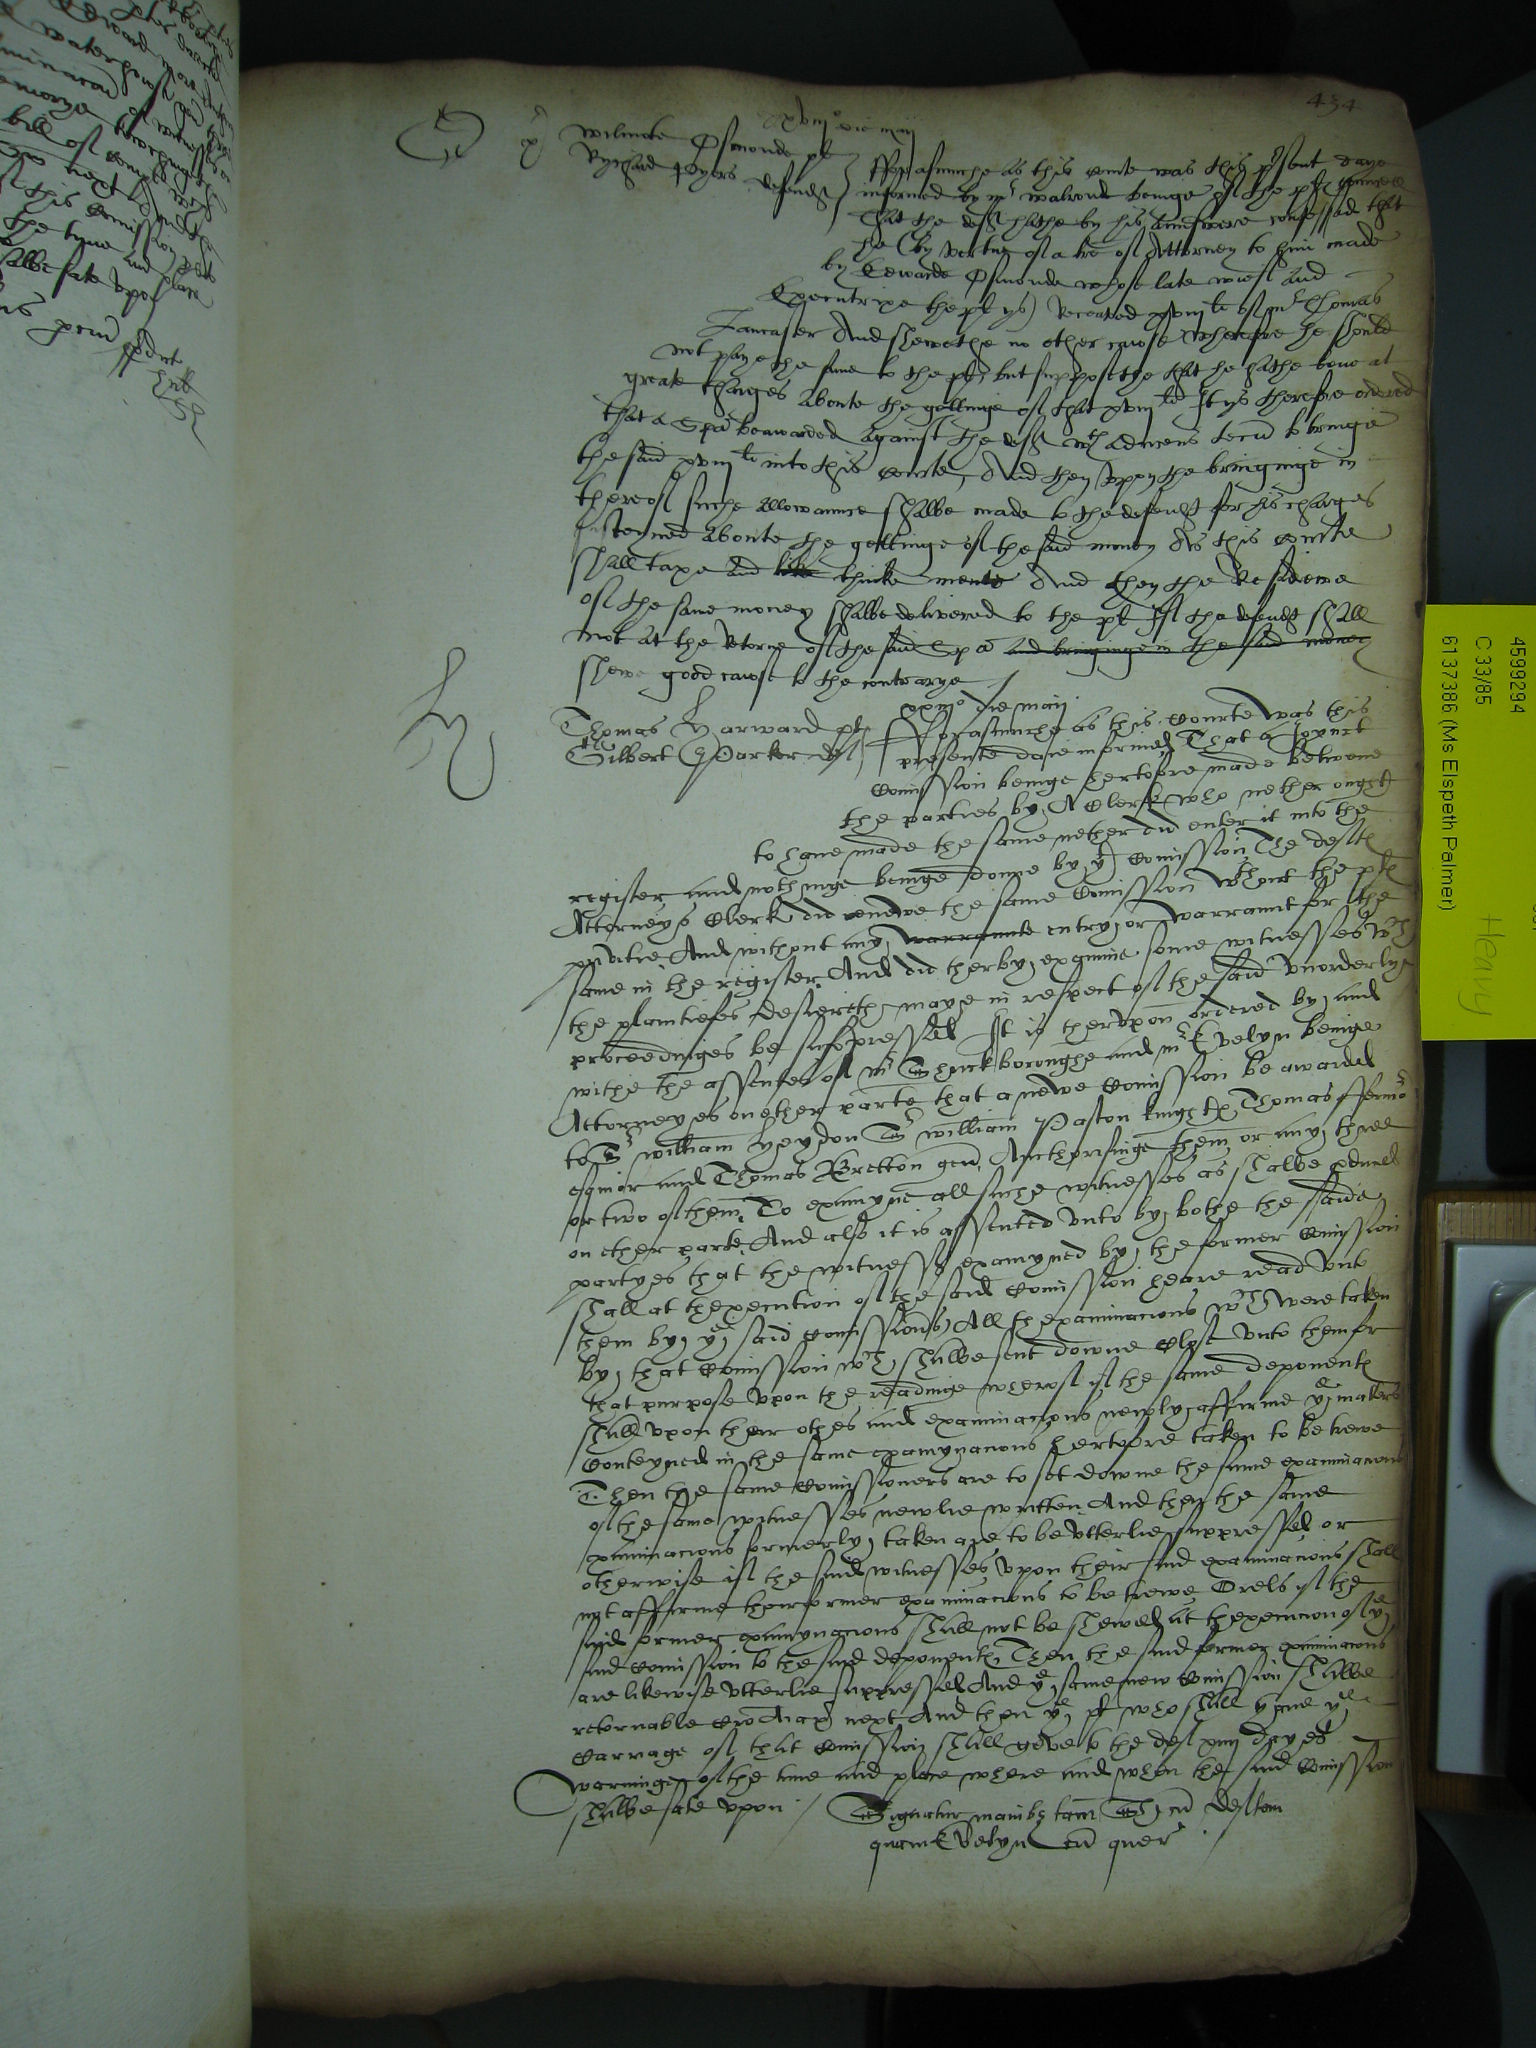 434
xxviij die maij
O
wilmote Osmonde pl
Rychard Fyers defendt
Fforasmuche as this courte was this present daye
informed by mr walrond beinge of the pl counsell
That the deft hathe by his aunswere confessed that
he (by vertue of a lre of Attorney to him made
by Edwarde Osmonde whose late wief and
Executrixe the pl ys) Receaved xviij li of mr Thomas
Lancaster And shewethe no other cawse wherefore he should
not paye the same to the pl, but supposethe that he hathe bene at
greate charges aboute the gettinge of that xviij li It ys therefore ordered
that a Spa be awarded against the deft wth aducens secu to bringe
the said xviij li into this courte, And then upon the bringinge in
thereof suche allowaunce shalbe made to the defendt for his charges
susteyned aboute the gettinge of the said money As this courte
shall taxe and like thinke meete And then the Residewe
of the same money shalbe delivered to the pl If the defendt shall
not at the retorne of the said Spa and bringinge in the said money
shewe good cause to the contrarye
H
xxiijo die maij
Thomas Harward pl
Gilbert Parker def
Forasmuche as this Courte was this
presente daye informed That a Joynct
Comission beinge hertofore made betwene
the parties by A Clerk who nether ought
to have made the same nether did enter it into the
register and nothinge beinge donne by yt Comission The deftes
Attorneys Clerk did renewe the same Comission wthout the pltes
privitie And without any warraunte entry or warraunt for the
same in the register, And did therby examine some witnesses wch
the plaintiefes desiereth maye in respect of the said unorderlye
proceedinges be suppressed It is therupon ordered by and
withe the assentes of mr Shuckboroughe and mr Evelyn beinge
Attorneyes on ether parte that a newe Comission be awarded
to Sr william heydon Sr william Paston knightes, Thomas ffermor
esquior and Thomas Bretton gen, Authorisinge them or any three
or two of them, To examyne all suche witnesses as shalbe pduced
on ether parte, And also it is assented unto by bothe the saide
partyes that the witnesses examyned by the former Comission
shall at thexecution of the said Comission heare read unto
them by ye said Comissions, All thexaminacions wch were taken
by that Comission wch shalbe sent downe Close unto them for
that purpose upon the readinge wherof if the same deponents
shall upon their othes and examinacions newly affirme ye maters
Conteyned in the same examynacions hertofore taken to be trewe
Then the same Comissioners are to set downe the same examinacions
of the same witnesses newlie written And then the same
examinacions formerly taken are to be utterlie suppressed or
otherwise if the said witnesses upon their said examinacions shall
not affirme their former examinacions to be trewe Orels if the
said former examynacions shall not be shewed at thexecucion of ye
said Comission to the said deponents, Then the said former examinacions
are likewise utterlie suppressed And ye same new Comission shalbe
retornable next And then ye pl who shall have ye
Carriage of that Comission shall geve to the def xiiij dayes
warninge of the time and place where and when the said Comission
shalbe sate upon
Signatur manibz tam cu deften
quam Evelyn cu quer
4599294
C 33/85
6137386 (Ms Elspeth Palmer)
Heavy